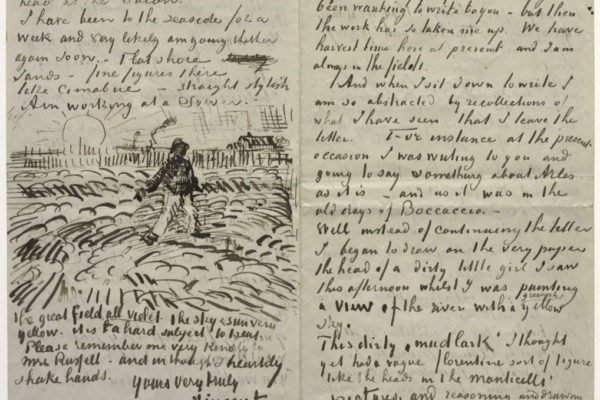 head at the Salon.
I have been to the seaside for a
week and very likely am going thither
again soon. - Flat shore
sands - fine figures there
like Cimabue - straight stylish
Am working at a Sower.
the great field all violet the sky & sun very
yellow. it is a hard subject to treat.
Please remember me very kindly to
Mrs Russell - and in thought I heartily
shake hands.
Yours very truly
Vincent
been wanting to write to you - but then
the work has so taken me up. We have
harvest time here at present and I am
always in the fields.
And when I sit down to write I
am so abstracted by recollections of
what I have seen that I leave the
letter. For instance at the present
occasion I was writing to you and
going to say something about Arles
as it is - and as it was in the
old days of Boccaccio. -
Well instead of continuing the letter
I began to draw on the very paper
the head of a dirty little girl I saw
this afternoon whilst I was painting
a view of the river with a greenish yellow
sky.
This dirty „mudlark" I thought
yet had a vague florentine sort of figure
like the heads in the monticelli
pictures, and reasoning and drawing